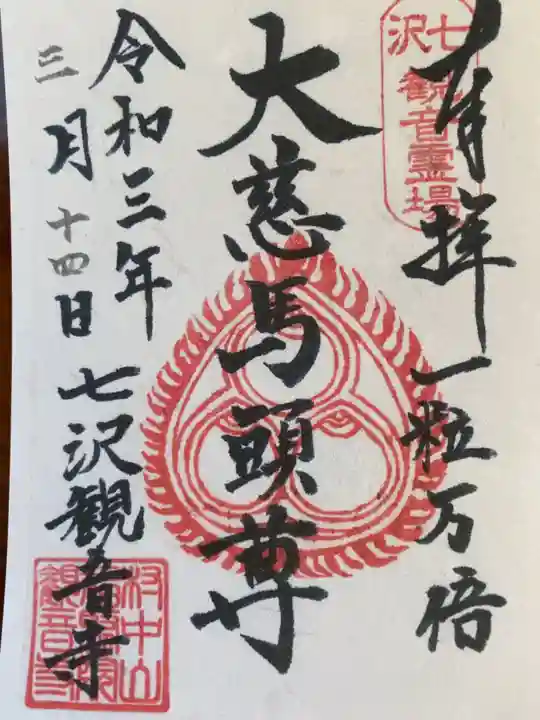 奉拝 一粒万倍
七沢
観音霊場
大慈馬頭尊
令和三年
三月十四日
七沢観音寺